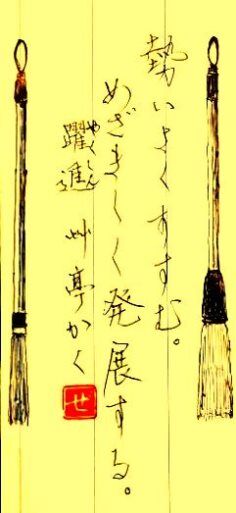 勢いよくすすむ。
めざましく発展する。
躍進 艸亭かく
やくしん
せ